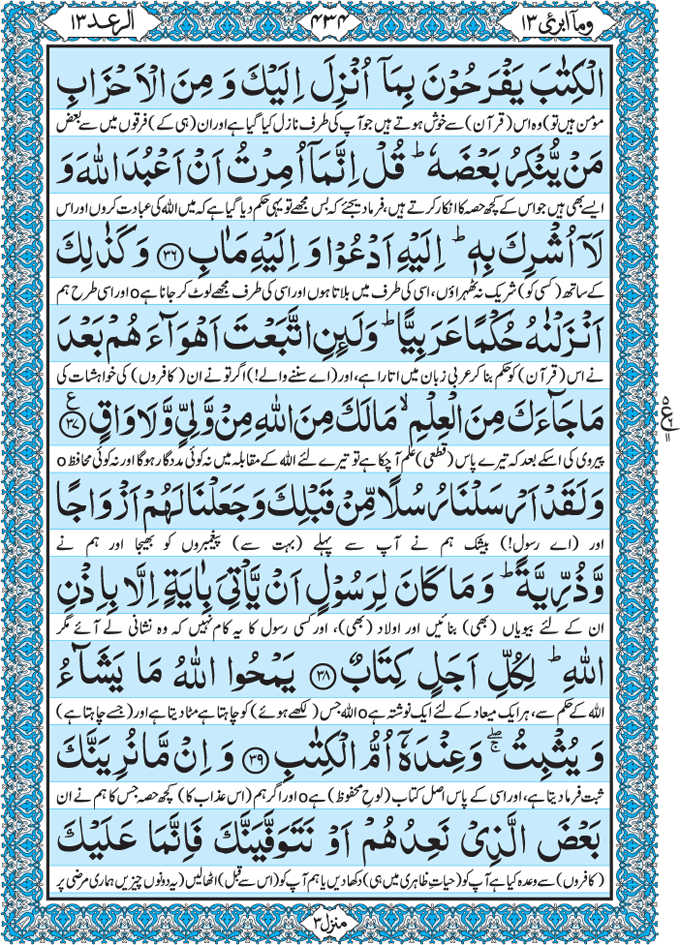 الرعد ١٣ ۴۳۴ وما ابرئ ١٣
الْكِتٰبَ يَفْرَحُوْنَ بِمَاۤ اُنْزِلَ اِلَيْكَ وَ مِنَ الْاَحْزَابِ
مومن ہیں تو) وہ اس (قرآن) سے خوش ہوتے ہیں جو آپ کی طرف نازل کیا گیا ہے اور ان (ہی کے) فرقوں میں سے بعض
مَنْ يُّنْكِرُ بَعْضَهٗ ؕ قُلْ اِنَّمَاۤ اُمِرْتُ اَنْ اَعْبُدَ اللّٰهَ وَ
ایسے بھی ہیں جو اس کے کچھ حصہ کا انکار کرتے ہیں، فرما دیجئے کہ بس مجھے تو یہی حکم دیا گیا ہے کہ میں اللہ کی عبادت کروں اور اس
لَاۤ اُشْرِكَ بِهٖ ؕ اِلَيْهِ اَدْعُوْا وَ اِلَيْهِ مَاٰبِ ﴿۳۶﴾ وَ كَذٰلِكَ
کے ساتھ (کسی کو) شریک نہ ٹھہراؤں، اسی کی طرف میں بلاتا ہوں اور اسی کی طرف مجھے لوٹ کر جانا ہے o اور اسی طرح ہم
اَنْزَلْنٰهُ حُكْمًا عَرَبِيًّا ؕ وَلَىِٕنِ اتَّبَعْتَ اَهْوَآءَ هُمْ بَعْدَ
نے اس (قرآن) کو حکم بنا کر عربی زبان میں اتارا ہے، اور (اے سننے والے!) اگر تو نے ان (کافروں) کی خواہشات کی
مَا جَآءَكَ مِنَ الْعِلْمِ ۙ مَا لَكَ مِنَ اللّٰهِ مِنْ وَّلِيٍّ وَّلَا وَاقٍ ﴿۳۷﴾ ع
پیروی کی اسکے بعد کہ تیرے پاس (قطعی) علم آ چکا ہے تو تیرے لئے اللہ کے مقابلہ میں نہ کوئی مددگار ہوگا اور نہ کوئی محافظ o
وَلَقَدْ اَرْسَلْنَا رُسُلًا مِّنْ قَبْلِكَ وَجَعَلْنَا لَهُمْ اَزْوَاجًا
اور (اے رسول!) بیشک ہم نے آپ سے پہلے (بہت سے) پیغمبروں کو بھیجا اور ہم نے
وَّذُرِّيَّةً ؕ وَ مَا كَانَ لِرَسُوْلٍ اَنْ يَّاْتِيَ بِاٰيَةٍ اِلَّا بِاِذْنِ
ان کے لئے بیویاں (بھی) بنائیں اور اولاد (بھی)، اور کسی رسول کا یہ کام نہیں کہ وہ نشانی لے آئے مگر
اللّٰهِ ؕ لِكُلِّ اَجَلٍ كِتَابٌ ﴿۳۸﴾ يَمْحُوا اللّٰهُ مَا يَشَآءُ
اللہ کے حکم سے، ہر ایک میعاد کے لئے ایک نوشتہ ہے o اللہ جس (لکھے ہوئے) کو چاہتا ہے مٹا دیتا ہے اور (جسے چاہتا ہے)
وَ يُثْبِتُ ۚۖ وَعِنْدَهٗۤ اُمُّ الْكِتٰبِ ﴿۳۹﴾ وَ اِنْ مَّا نُرِيَنَّكَ
ثبت فرما دیتا ہے، اور اسی کے پاس اصل کتاب (لوحِ محفوظ) ہے o اور اگر ہم (اس عذاب کا) کچھ حصہ جس کا ہم نے ان
بَعْضَ الَّذِيْ نَعِدُهُمْ اَوْ نَتَوَفَّيَنَّكَ فَاِنَّمَا عَلَيْكَ
(کافروں) سے وعدہ کیا ہے آپ کو (حیاتِ ظاہری میں ہی) دکھا دیں یا ہم آپ کو (اس سے قبل) اٹھا لیں (یہ دونوں چیزیں ہماری مرضی پر
منزل ۳